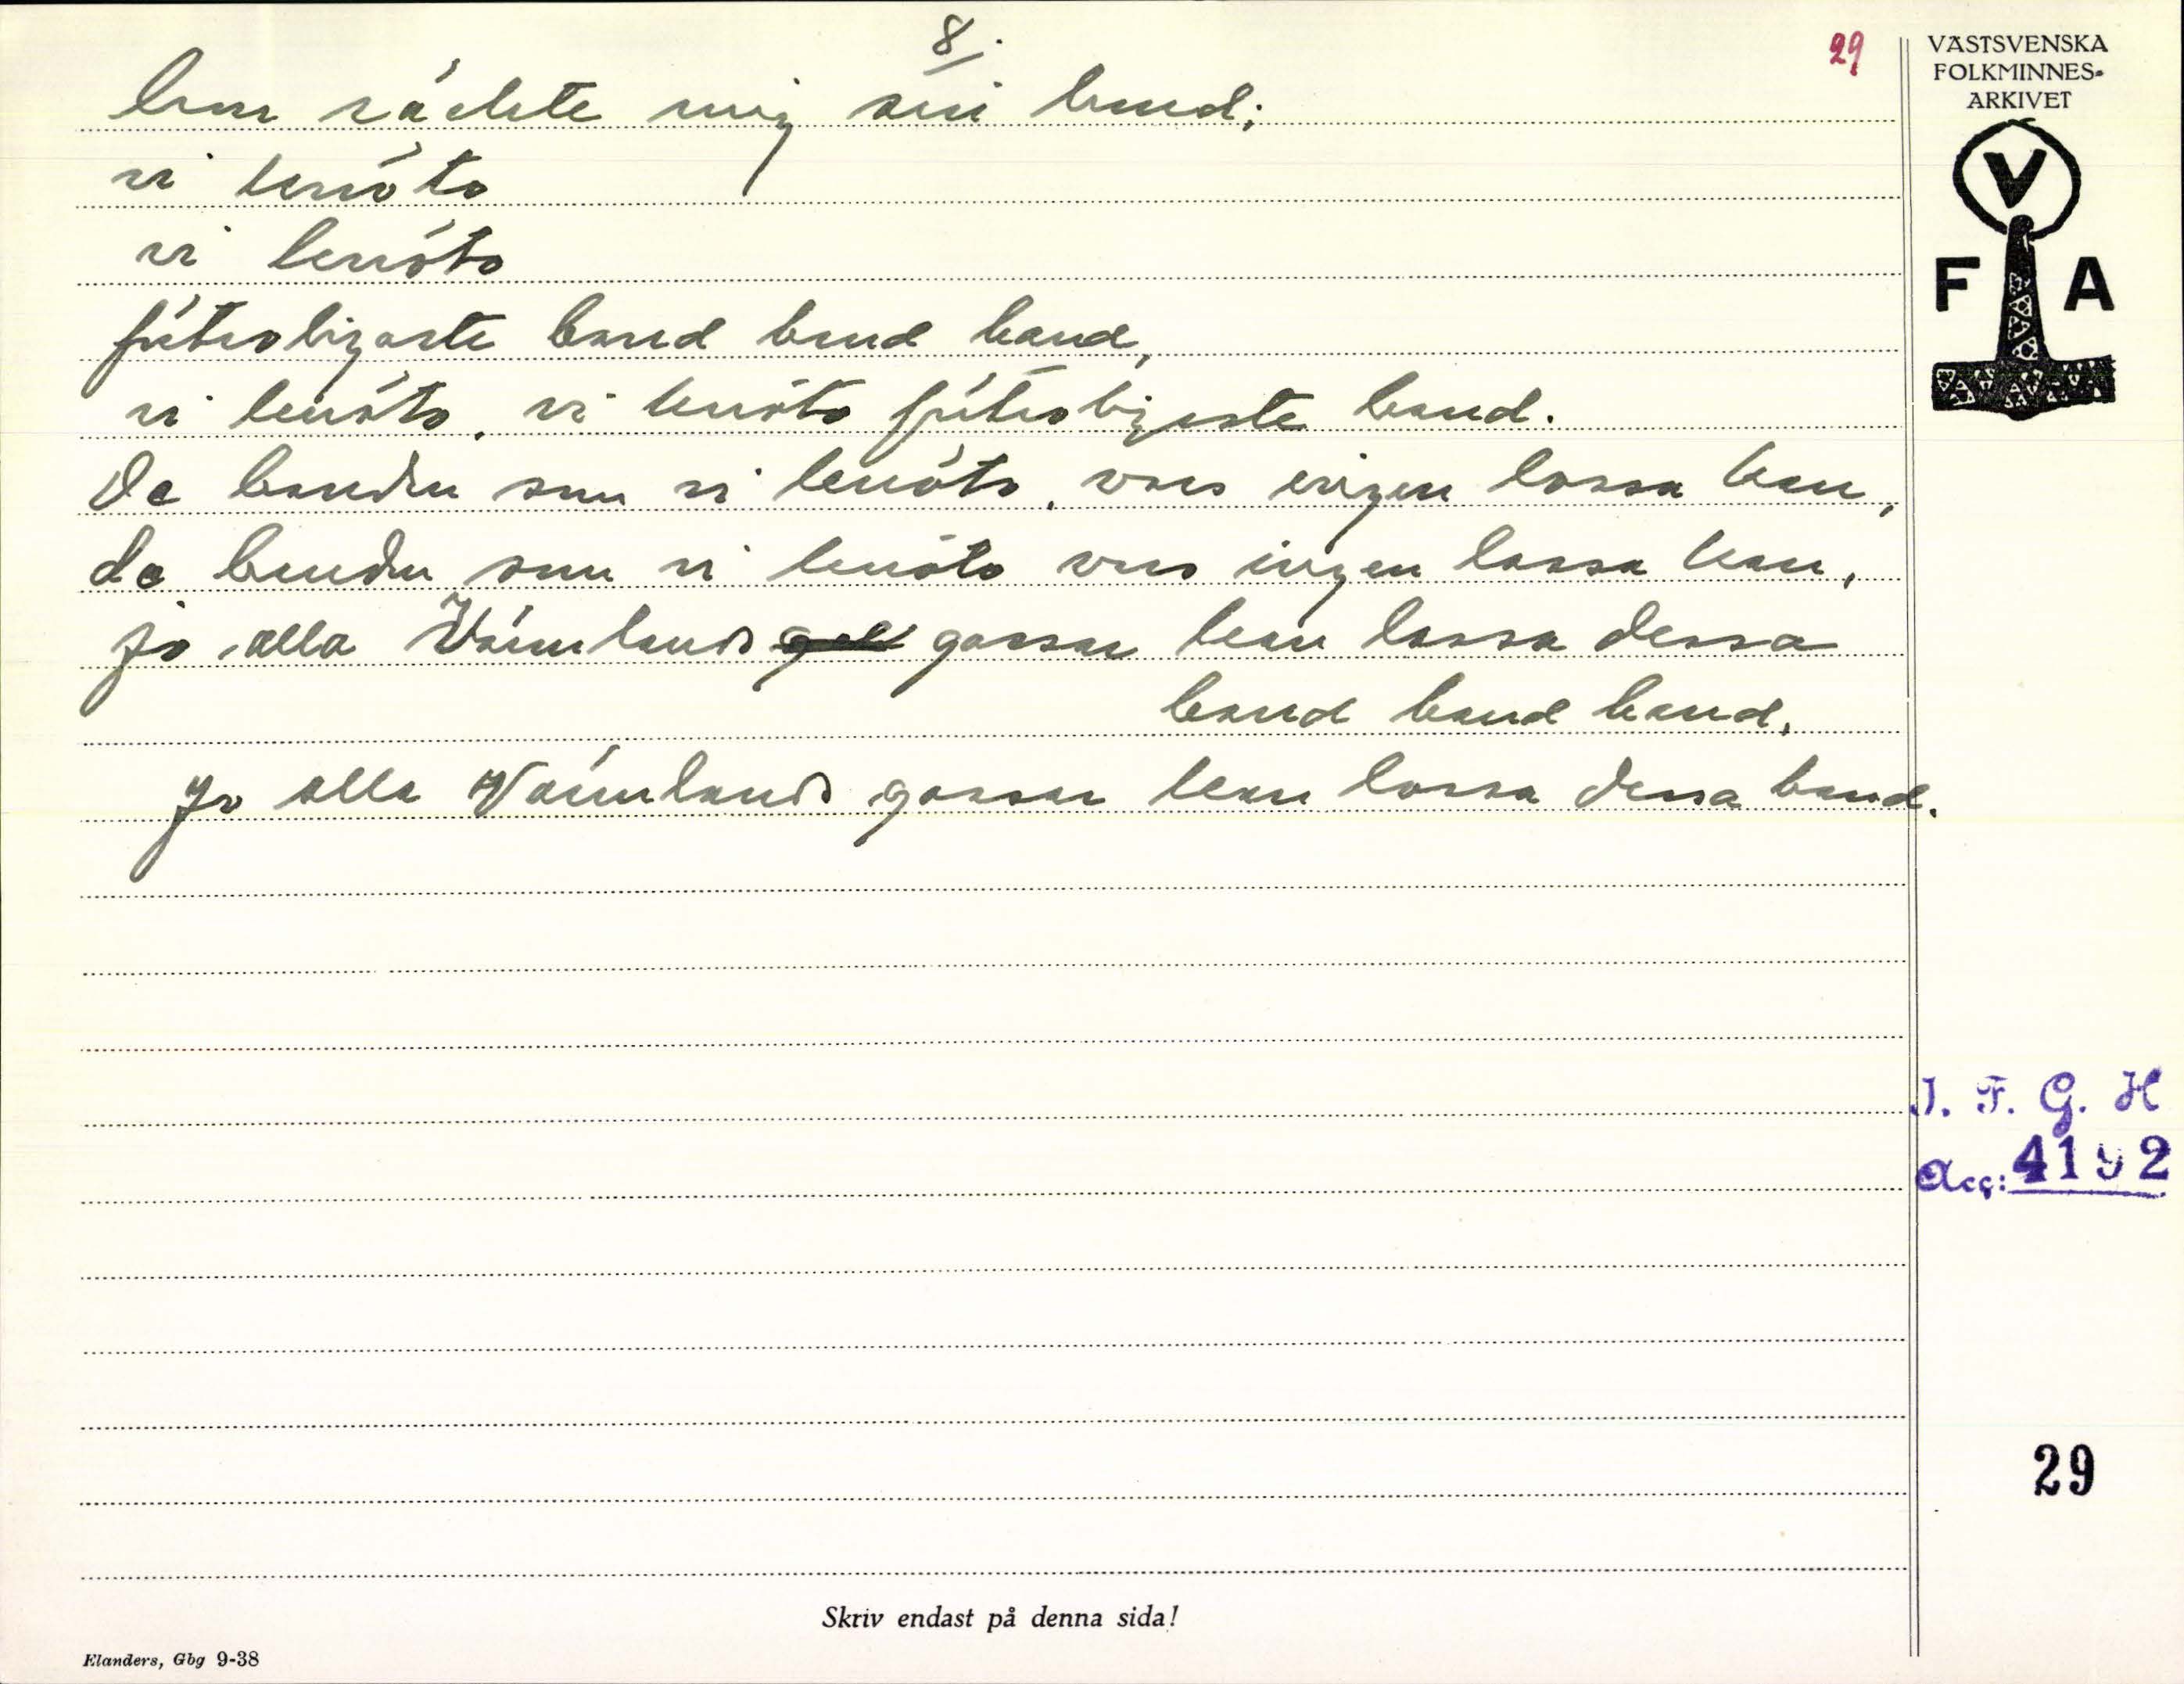 8/.
29
han räckte mig sin hand;
vi knöto
vi knöto
förtroligaste band band band,
vi knöto, vi knöto förtroligaste band.
De banden som vi knöto, dem ingen lossa kan,
de banden som vi knöto dem ingen lossa kan,
jo alla Värmlands gossar kan lossa dessa
band band band,
Jo alla Värmlands gossar kan lossa dessa band.
VÄSTSVENSKA
FOLKMINNES-
ARKIVET
V
F A
I. F. G. H
Acc: 4192
29
Skriv endast på denna sida!
Elanders, Gbg 9-38